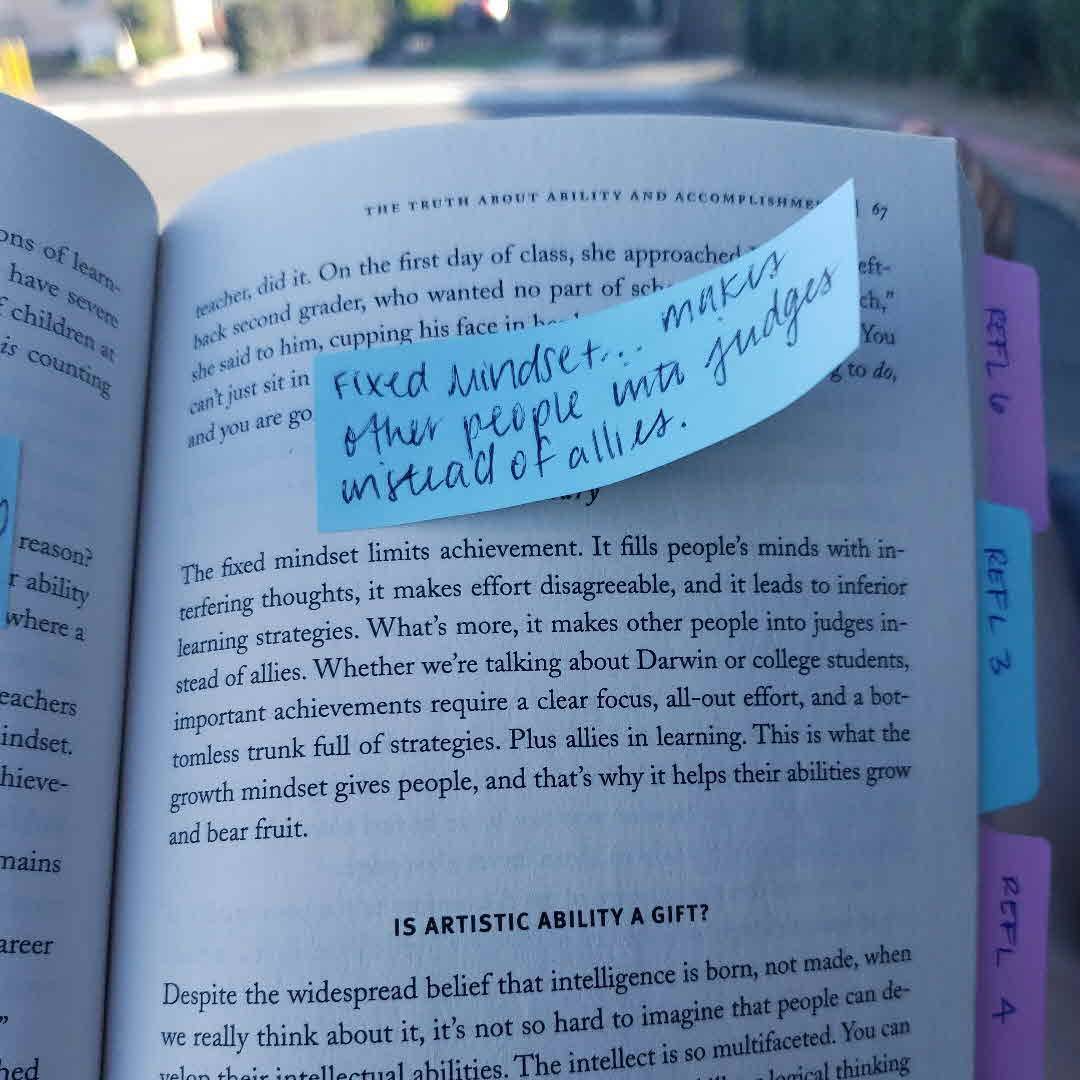 ons of learn-
have severe
f children at
is counting
reason?
r ability
where a
eachers
indset.
hieve-
mains
areer
”
hed
THE TRUTH ABOUT ABILITY AND ACCOMPLISHME 67
teacher, did it. On the first day of class, she approached eft-
back second grader, who wanted no part of sch ch,”
she said to him, cupping his face in You
can’t just sit in g to do,
and you are go
Fixed Mindset... makes
other people into judges
instead of allies.
The fixed mindset limits achievement. It fills people’s minds with in-
terfering thoughts, it makes effort disagreeable, and it leads to inferior
learning strategies. What’s more, it makes other people into judges in-
stead of allies. Whether we’re talking about Darwin or college students,
important achievements require a clear focus, all-out effort, and a bot-
tomless trunk full of strategies. Plus allies in learning. This is what the
growth mindset gives people, and that’s why it helps their abilities grow
and bear fruit.
IS ARTISTIC ABILITY A GIFT?
Despite the widespread belief that intelligence is born, not made, when
we really think about it, it’s not so hard to imagine that people can de-
velop their intellectual abilities. The intellect is so multifaceted. You can
logical thinking
REFL 6
REFL 3
REFL 4